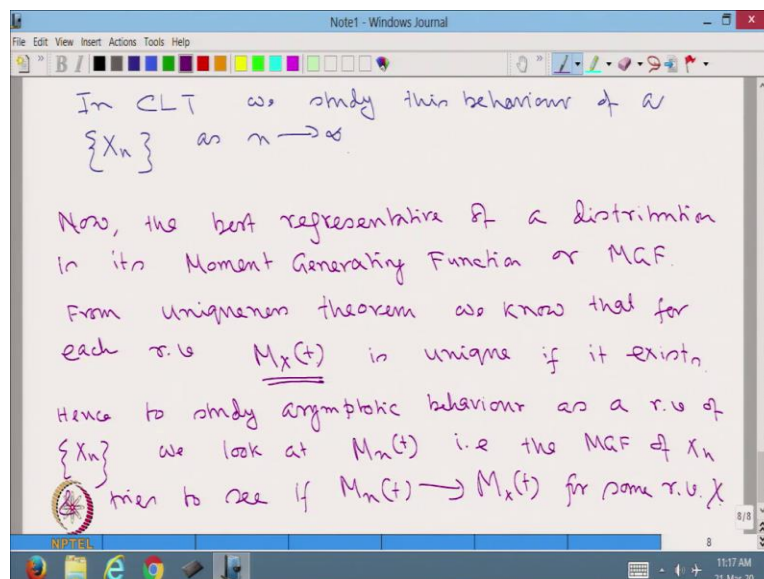 Note1 - Windows Journal
File Edit View Insert Actions Tools Help
In CLT we study this behaviour of a
{Xn} as n → ∞
Now, the best representative of a distribution
is its Moment Generating Function or MGF.
From uniqueness theorem we know that for
each r.v Mx(t) is unique if it exists
Hence to study asymptotic behaviour as a r.v of
{Xn} we look at Mn(t) i.e the MGF of Xn
& tries to see if Mn(t) → Mx(t) for some r.v. X
8/8
NPTEL
8
11:17 AM
21-Mar-20